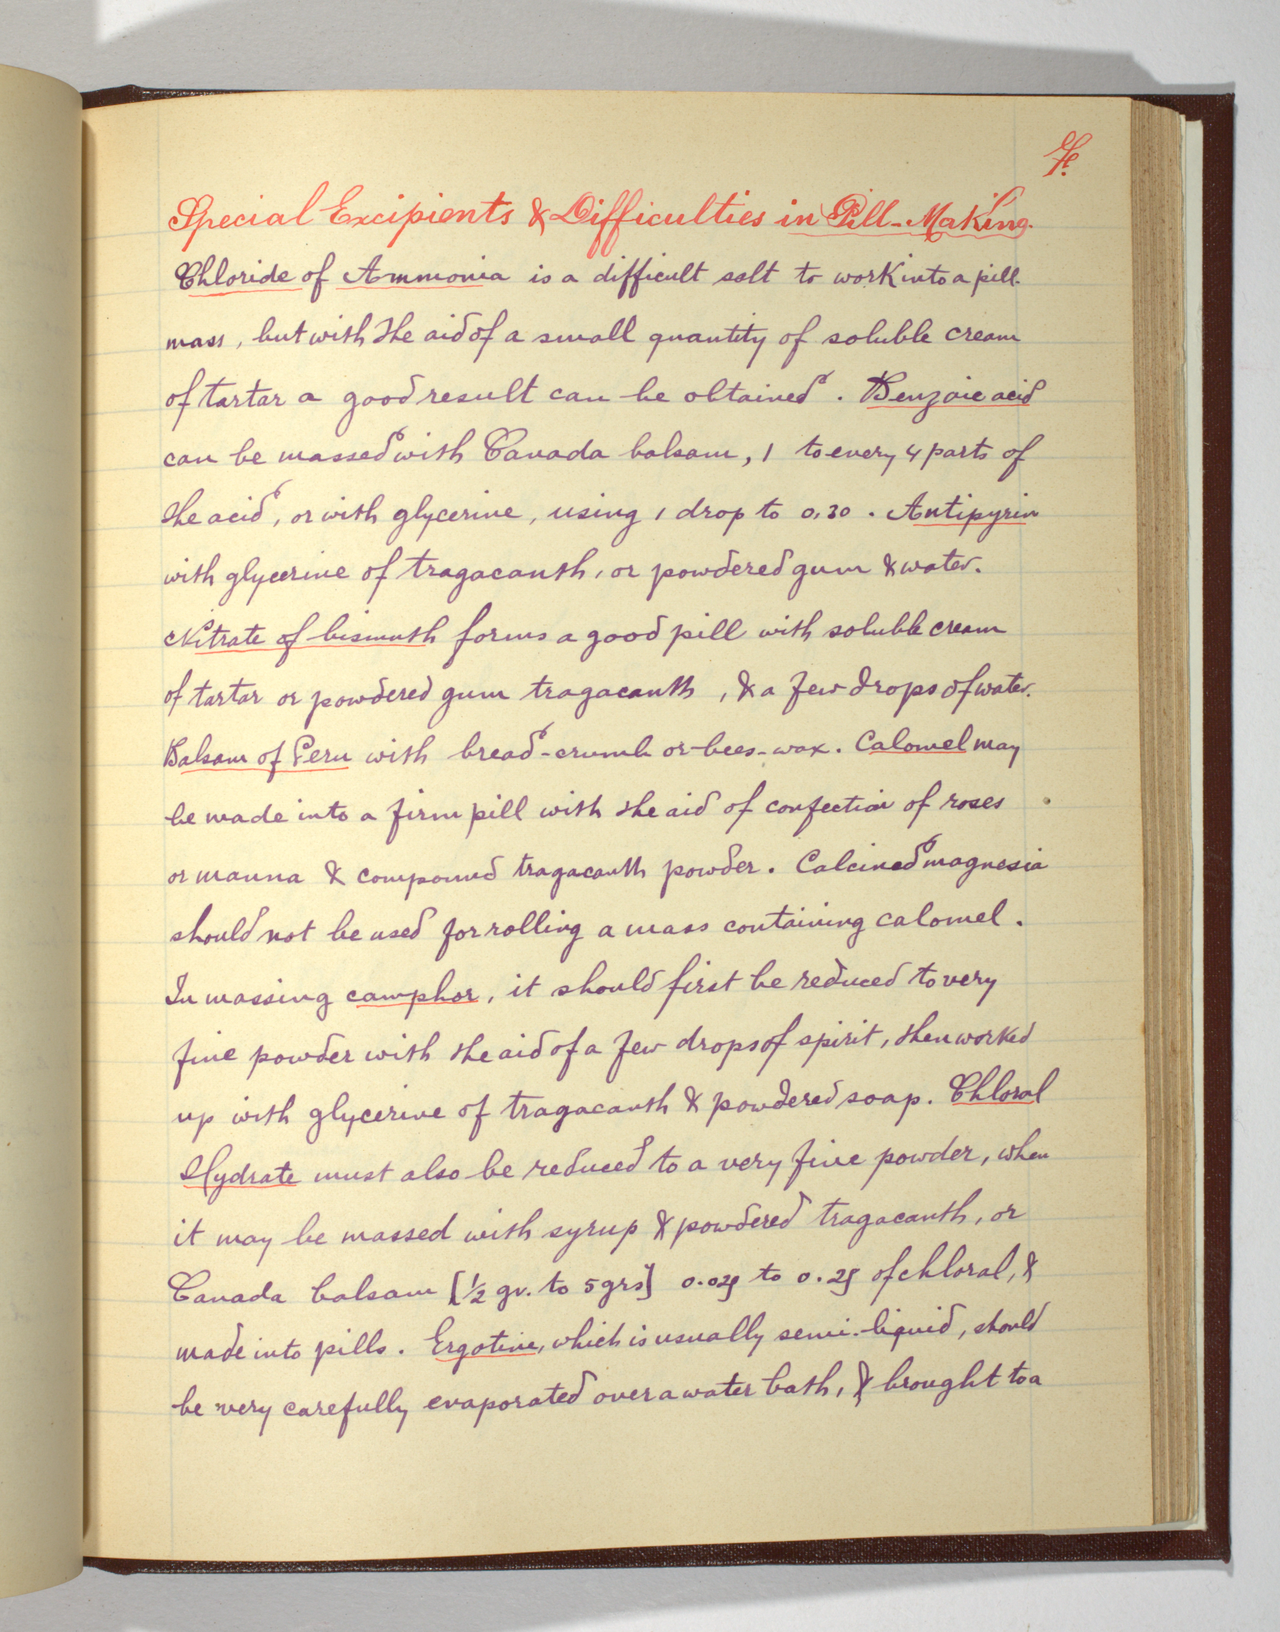 7.
Special Excipients & Difficulties in Pill-Making.
Chloride of Ammonia is a difficult salt to work into a pill-
mass, but with the aid of a small quantity of soluble cream
of tartar a good result can be obtained. Benzoic acid
can be massed with Canada balsam, 1 to every 4 parts of
the acid, or with glycerine, using 1 drop to 0.30. Antipyrin
with glycerine of tragacanth, or powdered gum & water.
Nitrate of bismuth forms a good pill with soluble cream
of tartar or powdered gum tragacanth, & a few drops of water.
Balsam of Peru with bread-crumb or bees-wax. Calomel may
be made into a firm pill with the aid of confection of roses
or manna & compound tragacanth powder. Calcined magnesia
should not be used for rolling a mass containing calomel.
In massing camphor, it should first be reduced to very
fine powder with the aid of a few drops of spirit, then worked
up with glycerine of tragacanth & powdered soap. Chloral
Hydrate must also be reduced to a very fine powder, when
it may be massed with syrup & powdered tragacanth, or
Canada balsam [½ gr. to 5 grs] 0.025 to 0.25 of chloral, &
made into pills. Ergotine, which is usually semi-liquid, should
be very carefully evaporated over a water bath, & brought to a